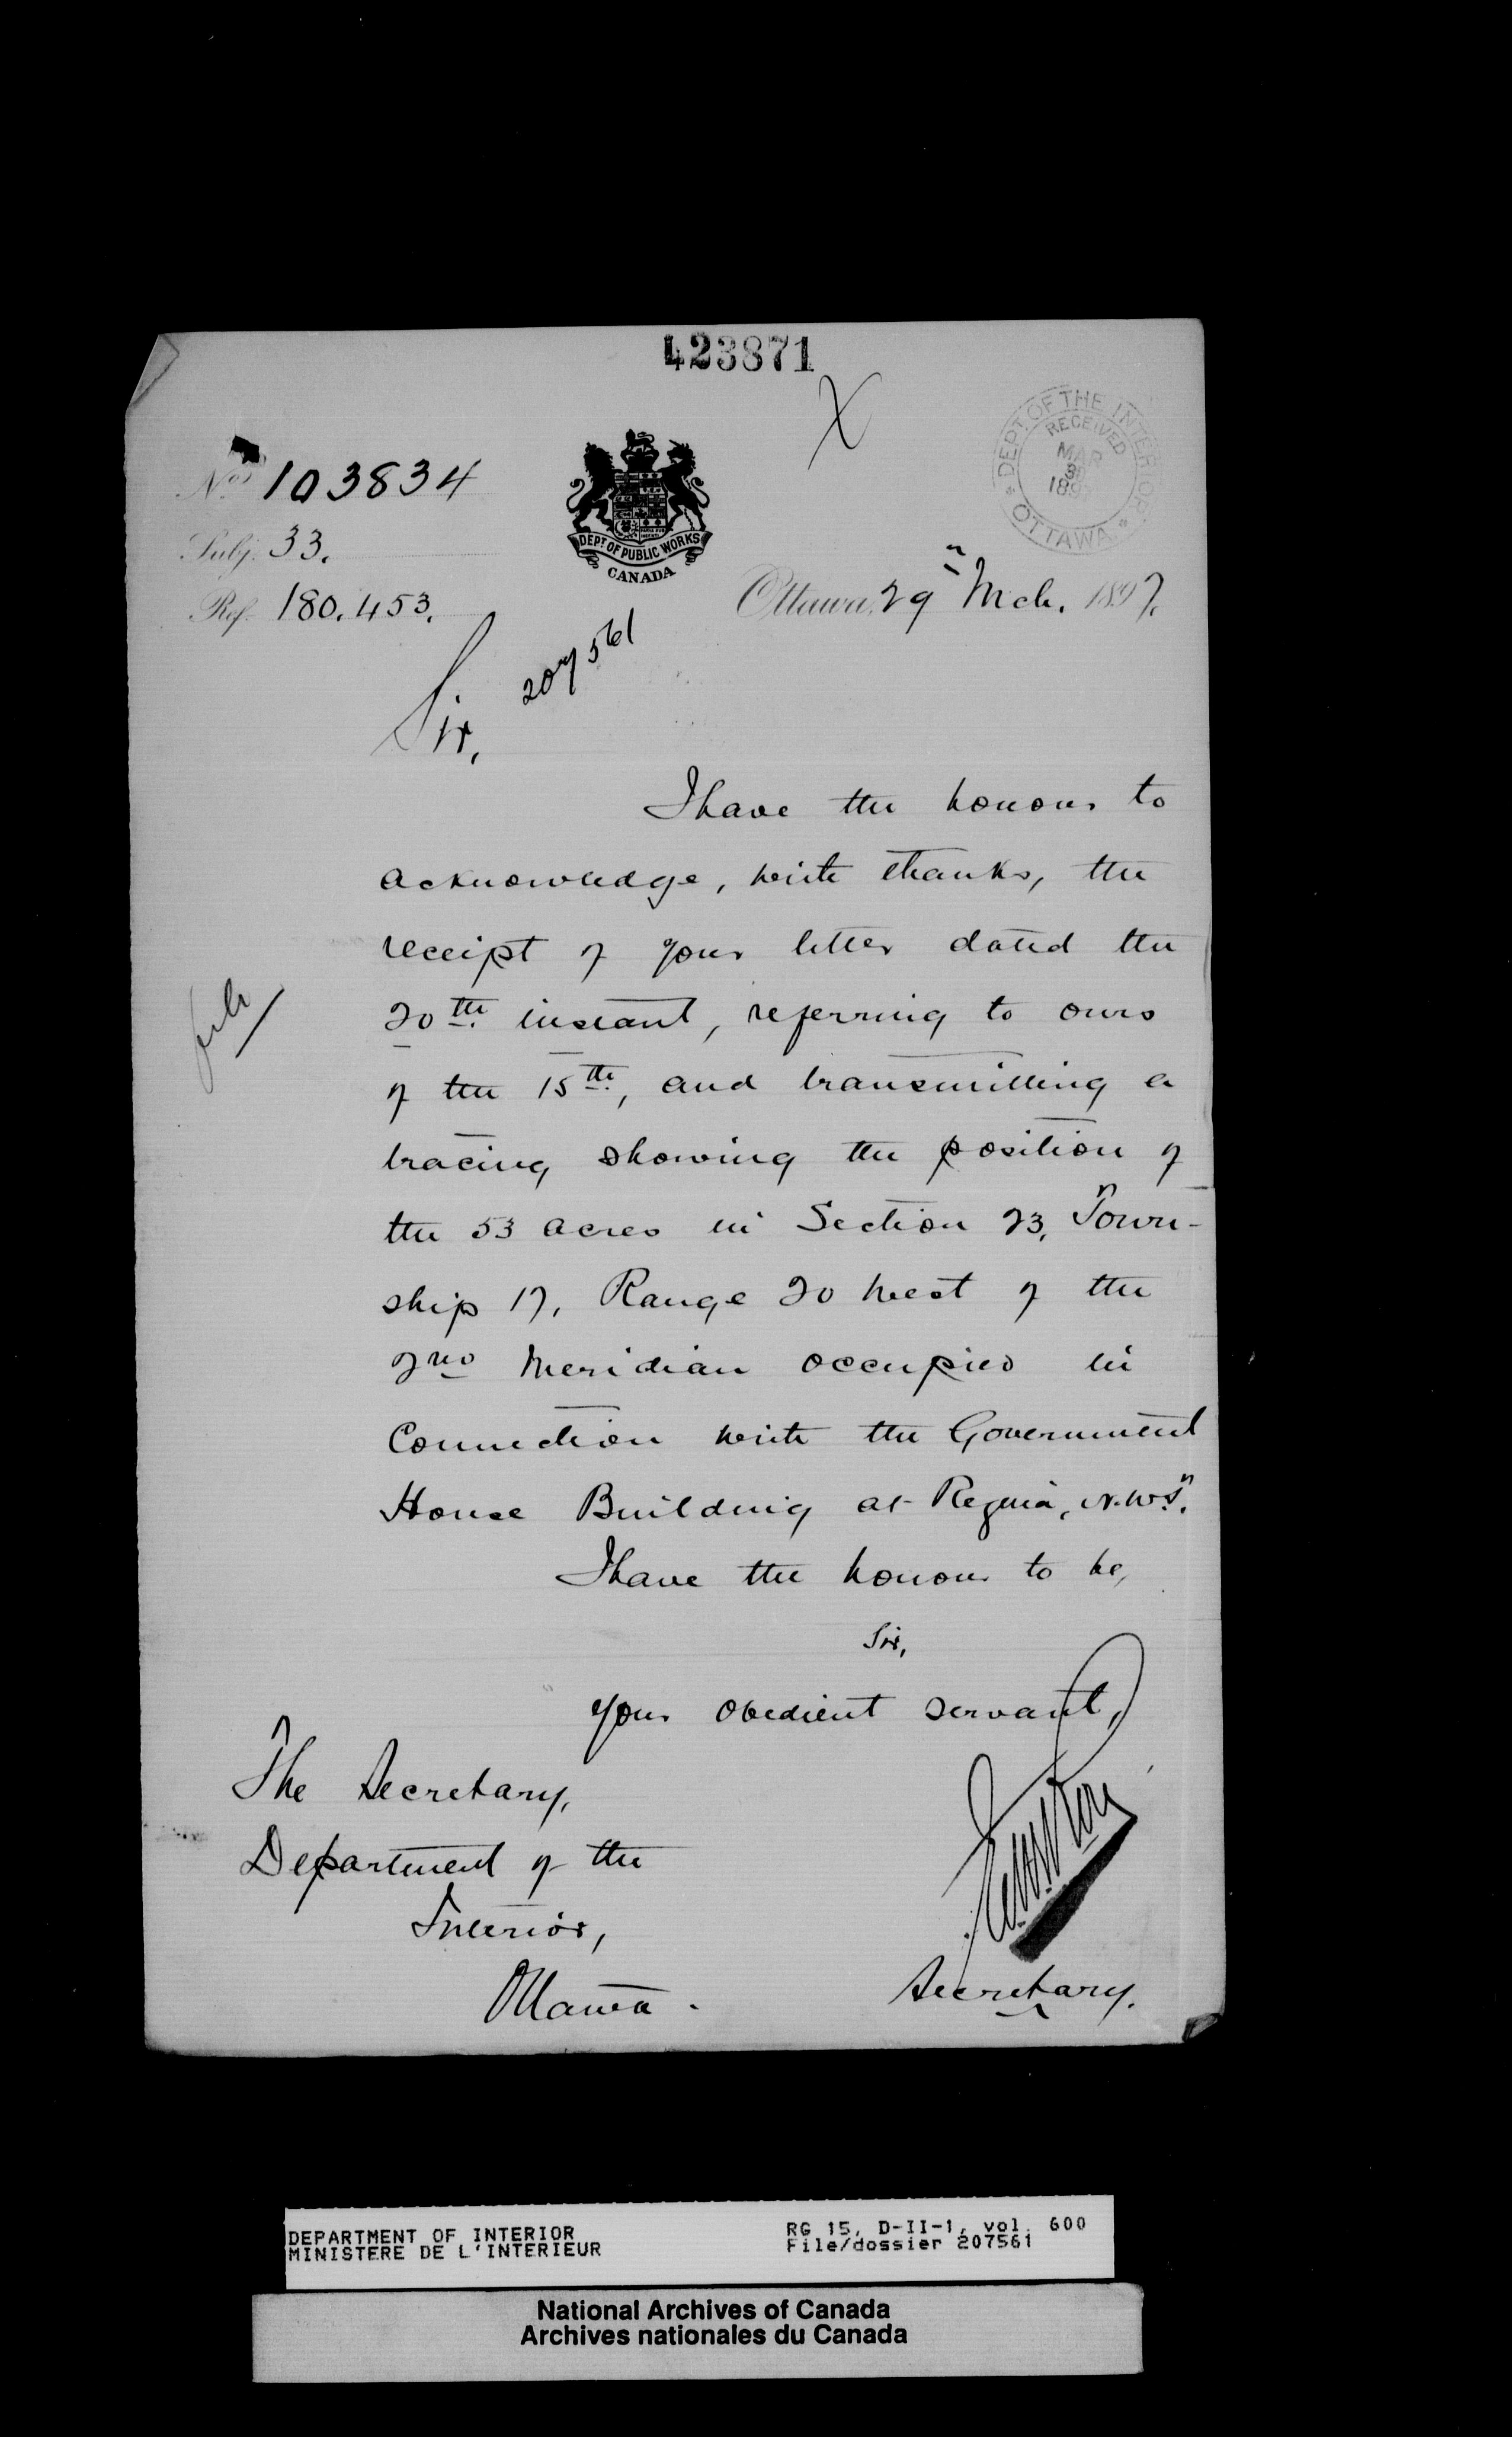 423871
X
DEPT. OF THE INTERIOR
RECEIVED
MAR
189
OTTAWA
No. 103834
Subj. 33.
Ref. 180.453.
DEPT OF PUBLIC WORKS
CANADA
Ottawa, 29" Mch. 1897.
207561
Sir,
I have the honour to
acknowledge, with thanks, the
receipt of your letter dated the
20th instant, referring to ours
of the 15th, and transmitting a
tracing showing the position of
the 53 acres in Section 23, Town-
ship 17, Range 20 West of the
2nd Meridian occupied in
Connection with the Government
House Building at Regina, N.W.T.
I have the honour to be,
Sir,
Your obedient servant,
The Secretary,
Department of the
Interior,
Ottawa.
Secretary.
DEPARTMENT OF INTERIOR
MINISTERE DE L'INTERIEUR
RG 15, D-II-1, vol. 600
File/dossier 207561
National Archives of Canada
Archives nationales du Canada